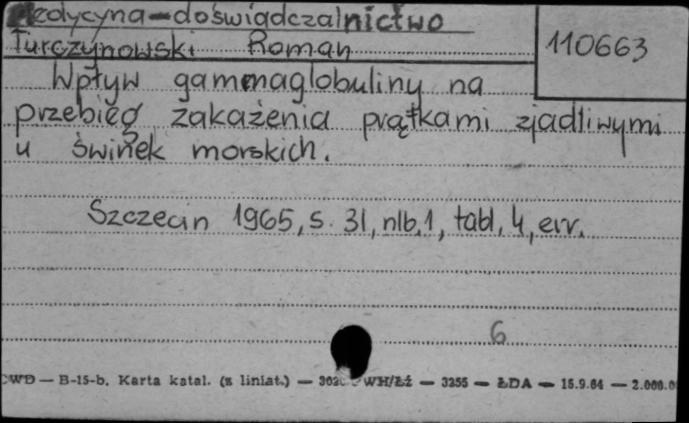 Medycyna - doświadczalnictwo
Turczynowski Roman
110663
Wpływ gammaglobuliny na
przebieg zakażenia prątkami zjadliwymi
u świnek morskich.
Szczecin 1965, s. 31, nlb. 1, tabl. 4, err.
6
CWD — B-15-b. Karta katal. (z liniat.) — WH/Łź — 3255 — ŁDA — 15.9.64 — 2.000.0